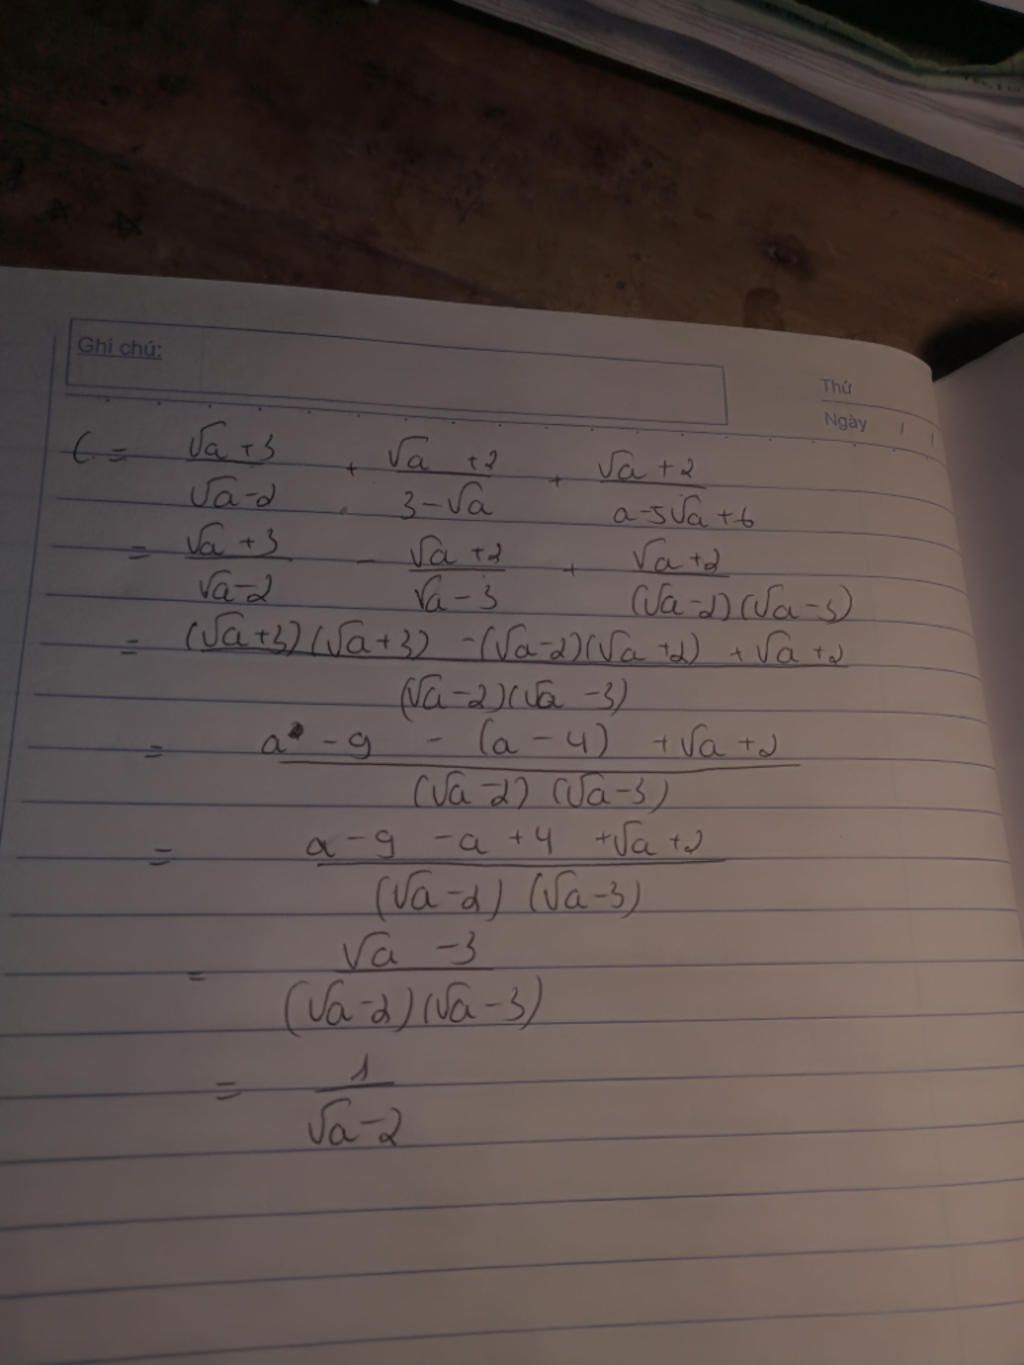 Ghi chú:
Thứ
Ngày / /
C = (√a + 3)/(√a - 2) + (√a + 2)/(3 - √a) + (√a + 2)/(a - 5√a + 6)
= (√a + 3)/(√a - 2) - (√a + 2)/(√a - 3) + (√a + 2)/((√a - 2)(√a - 3))
= ((√a + 3)(√a + 3) - (√a - 2)(√a + 2) + √a + 2)/((√a - 2)(√a - 3))
= (a - 9 - (a - 4) + √a + 2)/((√a - 2)(√a - 3))
= (a - 9 - a + 4 + √a + 2)/((√a - 2)(√a - 3))
= (√a - 3)/((√a - 2)(√a - 3))
= 1/(√a - 2)